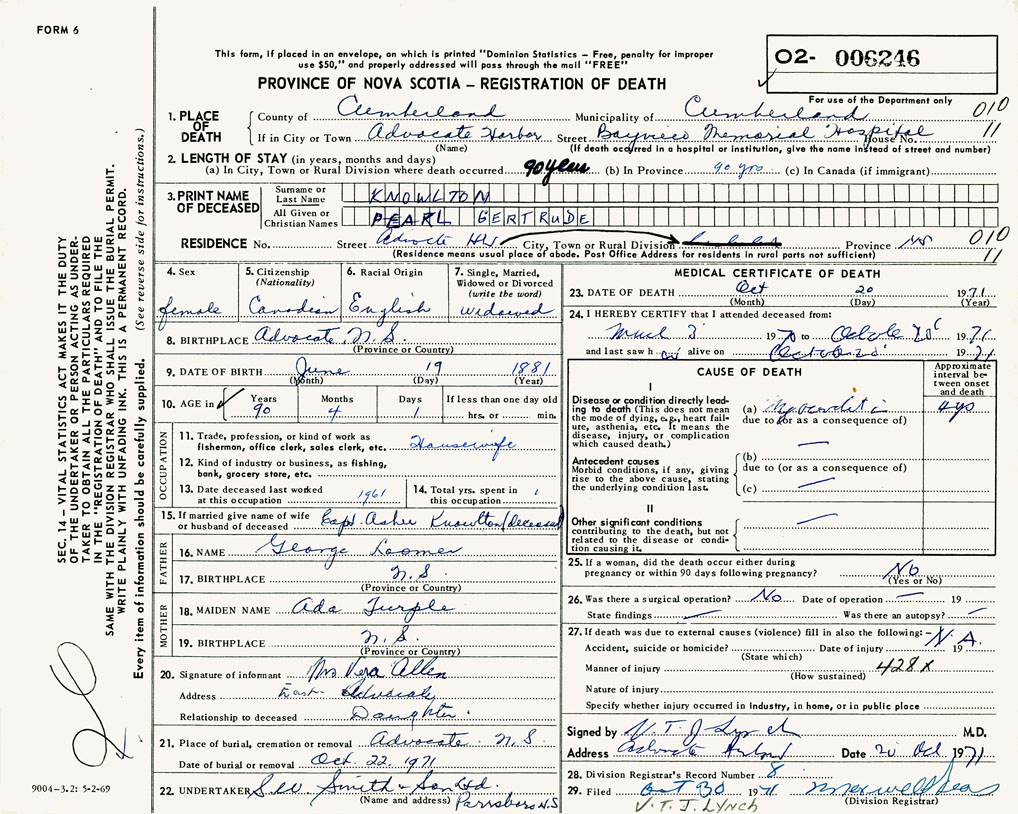 FORM 6
This form, if placed in an envelope, on which is printed "Dominion Statistics – Free, penalty for improper
use $50," and properly addressed will pass through the mail "FREE"
PROVINCE OF NOVA SCOTIA – REGISTRATION OF DEATH
O2- 006246
For use of the Department only
010
11
1. PLACE OF DEATH
County of Cumberland Municipality of Cumberland
If in City or Town Advocate Harbor Street Bayview Memorial Hospital House No.
(Name) (If death occurred in a hospital or institution, give the name instead of street and number)
2. LENGTH OF STAY (in years, months and days)
(a) In City, Town or Rural Division where death occurred 90 years (b) In Province 90 yrs (c) In Canada (if immigrant)
3. PRINT NAME OF DECEASED
Surname or Last Name KNOWLTON
All Given or Christian Names PEARL GERTRUDE
RESIDENCE No. Street Advocte Hbr City, Town or Rural Division Province NS
010
11
(Residence means usual place of abode. Post Office Address for residents in rural parts not sufficient)
4. Sex
female
5. Citizenship
(Nationality)
Canadian
6. Racial Origin
English
7. Single, Married,
Widowed or Divorced
(write the word)
widowed
8. BIRTHPLACE Advocate, N.S.
(Province or Country)
9. DATE OF BIRTH June 19 1881
(Month) (Day) (Year)
10. AGE in
Years 90
Months 4
Days 1
If less than one day old
hrs. or min.
OCCUPATION
11. Trade, profession, or kind of work as
fisherman, office clerk, sales clerk, etc. Housewife
12. Kind of industry or business, as fishing,
bank, grocery store, etc.
13. Date deceased last worked
at this occupation 1961
14. Total yrs. spent in
this occupation
15. If married give name of wife
or husband of deceased Capt. Asher Knowlton (deceased
FATHER
16. NAME George Loomer
17. BIRTHPLACE N.S.
(Province or Country)
MOTHER
18. MAIDEN NAME Ada Turple
19. BIRTHPLACE N.S.
(Province or Country)
20. Signature of informant Mrs Vera Allen
Address East Advocate
Relationship to deceased Daughter.
21. Place of burial, cremation or removal Advocate N.S.
Date of burial or removal Oct. 22, 1971
22. UNDERTAKER S.W. Smith & Son Ltd.
(Name and address) Parrsboro N.S
MEDICAL CERTIFICATE OF DEATH
23. DATE OF DEATH Oct 20 1971
(Month) (Day) (Year)
24. I HEREBY CERTIFY that I attended deceased from:
1970 to 1971
and last saw h alive on 1971
CAUSE OF DEATH
Approximate
interval be-
tween onset
and death
I
Disease or condition directly lead-
ing to death (This does not mean
the mode of dying, e.g., heart fail-
ure, asthenia, etc. It means the
disease, injury, or complication
which caused death.)
(a) Myocarditis 4 yrs
due to (or as a consequence of)
Antecedent causes
Morbid conditions, if any, giving
rise to the above cause, stating
the underlying condition last.
(b)
due to (or as a consequence of)
(c)
II
Other significant conditions
contributing to the death, but not
related to the disease or condi-
tion causing it.
25. If a woman, did the death occur either during
pregnancy or within 90 days following pregnancy? No
(Yes or No)
26. Was there a surgical operation? No Date of operation 19
State findings Was there an autopsy?
27. If death was due to external causes (violence) fill in also the following:- N.A.
Accident, suicide or homicide? Date of injury 19
(State which)
Manner of injury 428X
(How sustained)
Nature of injury
Specify whether injury occurred in Industry, in home, or in public place
Signed by V. T. J. Lynch M.D.
Address Advocate Harbour Date 20 Oct 1971
28. Division Registrar's Record Number 8
29. Filed Oct 30 1971
(Division Registrar)
V.T.J. LYNCH
SEC. 14 – VITAL STATISTICS ACT MAKES IT THE DUTY
OF THE UNDERTAKER OR PERSON ACTING AS UNDER-
TAKER TO OBTAIN ALL THE PARTICULARS REQUIRED
IN THE "REGISTRATION OF DEATH" AND TO FILE THE
SAME WITH THE DIVISION REGISTRAR WHO SHALL ISSUE THE BURIAL PERMIT.
WRITE PLAINLY WITH UNFADING INK. THIS IS A PERMANENT RECORD.
Every item of information should be carefully supplied. (See reverse side for instructions.)
9004-3.2: 5-2-69